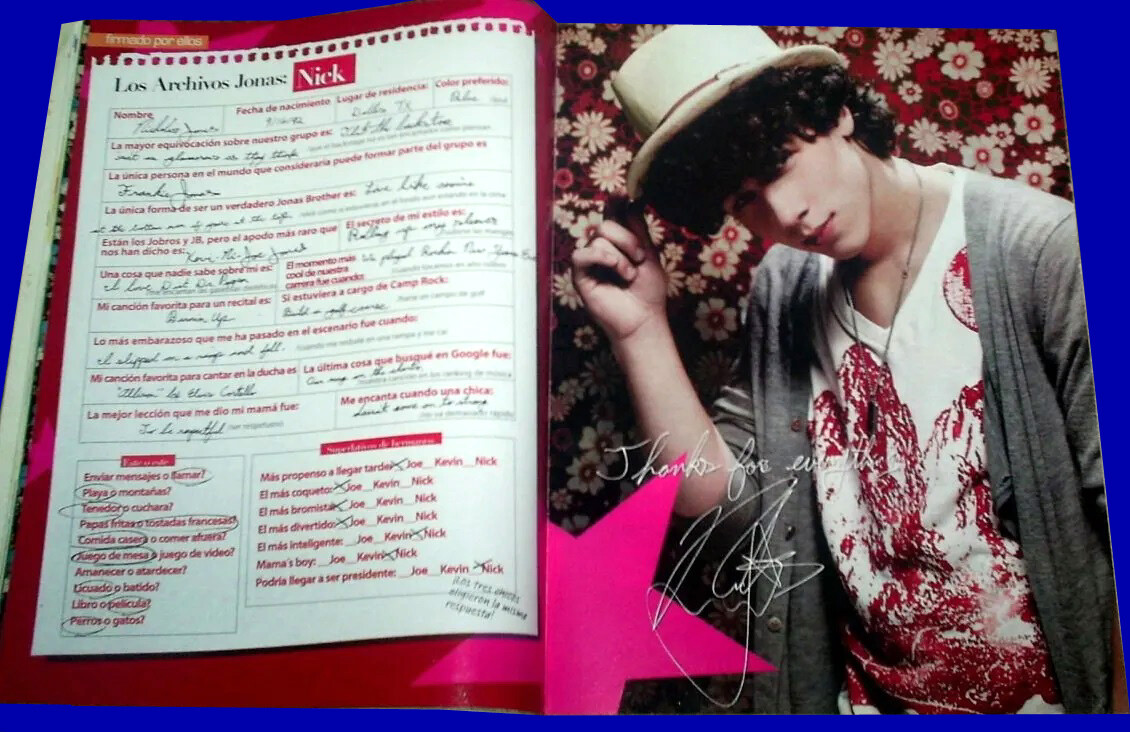 firmado por ellos
Los Archivos Jonas: Nick
Nombre
Nicholas Jonas
Fecha de nacimiento
9/16/92
Lugar de residencia:
Dallas TX
Color preferido:
Blue
La mayor equivocación sobre nuestro grupo es: that the backstage
not as glamorous as they think
La única persona en el mundo que consideraría puede formar parte del grupo es
Frankie Jonas
La única forma de ser un verdadero Jonas Brother es: Live like
at the bottom even if you're at the top
Están los Jobros y JB, pero el apodo más raro que
nos han dicho es:
El secreto de mi estilo es:
Rolling up my sleeves
Una cosa que nadie sabe sobre mí es:
I love Diet Dr. Pepper
El momento más
cool de nuestra
carrera fue cuando:
We played Rockin New Years Eve
Mi canción favorita para un recital es:
Burnin Up
Si estuviera a cargo de Camp Rock:
Build a golf course
Lo más embarazoso que me ha pasado en el escenario fue cuando:
I slipped on a ramp and fell.
Mi canción favorita para cantar en la ducha es
"Allison" by Elvis Costello
La última cosa que busqué en Google fue:
Our song on the charts
La mejor lección que me dio mi mamá fue:
To be respectful (ser respetuoso)
Me encanta cuando una chica:
doesn't come on to strong
Este o este
Enviar mensajes o llamar?
Playa o montañas?
Tenedor o cuchara?
Papas fritas o tostadas francesas?
Comida casera o comer afuera?
Juego de mesa o juego de video?
Amanecer o atardecer?
Licuado o batido?
Libro o película?
Perros o gatos?
Superlativos de hermanos
Más propenso a llegar tarde: X Joe__Kevin__Nick
El más coqueto: X Joe__Kevin__Nick
El más bromista: X Joe__Kevin__Nick
El más divertido: X Joe__Kevin__Nick
El más inteligente: __Joe__Kevin X Nick
Mama's boy: __Joe__Kevin X Nick
Podría llegar a ser presidente: __Joe__Kevin X Nick
¡Los tres chicos
eligieron la misma
respuesta!
Thanks for everything